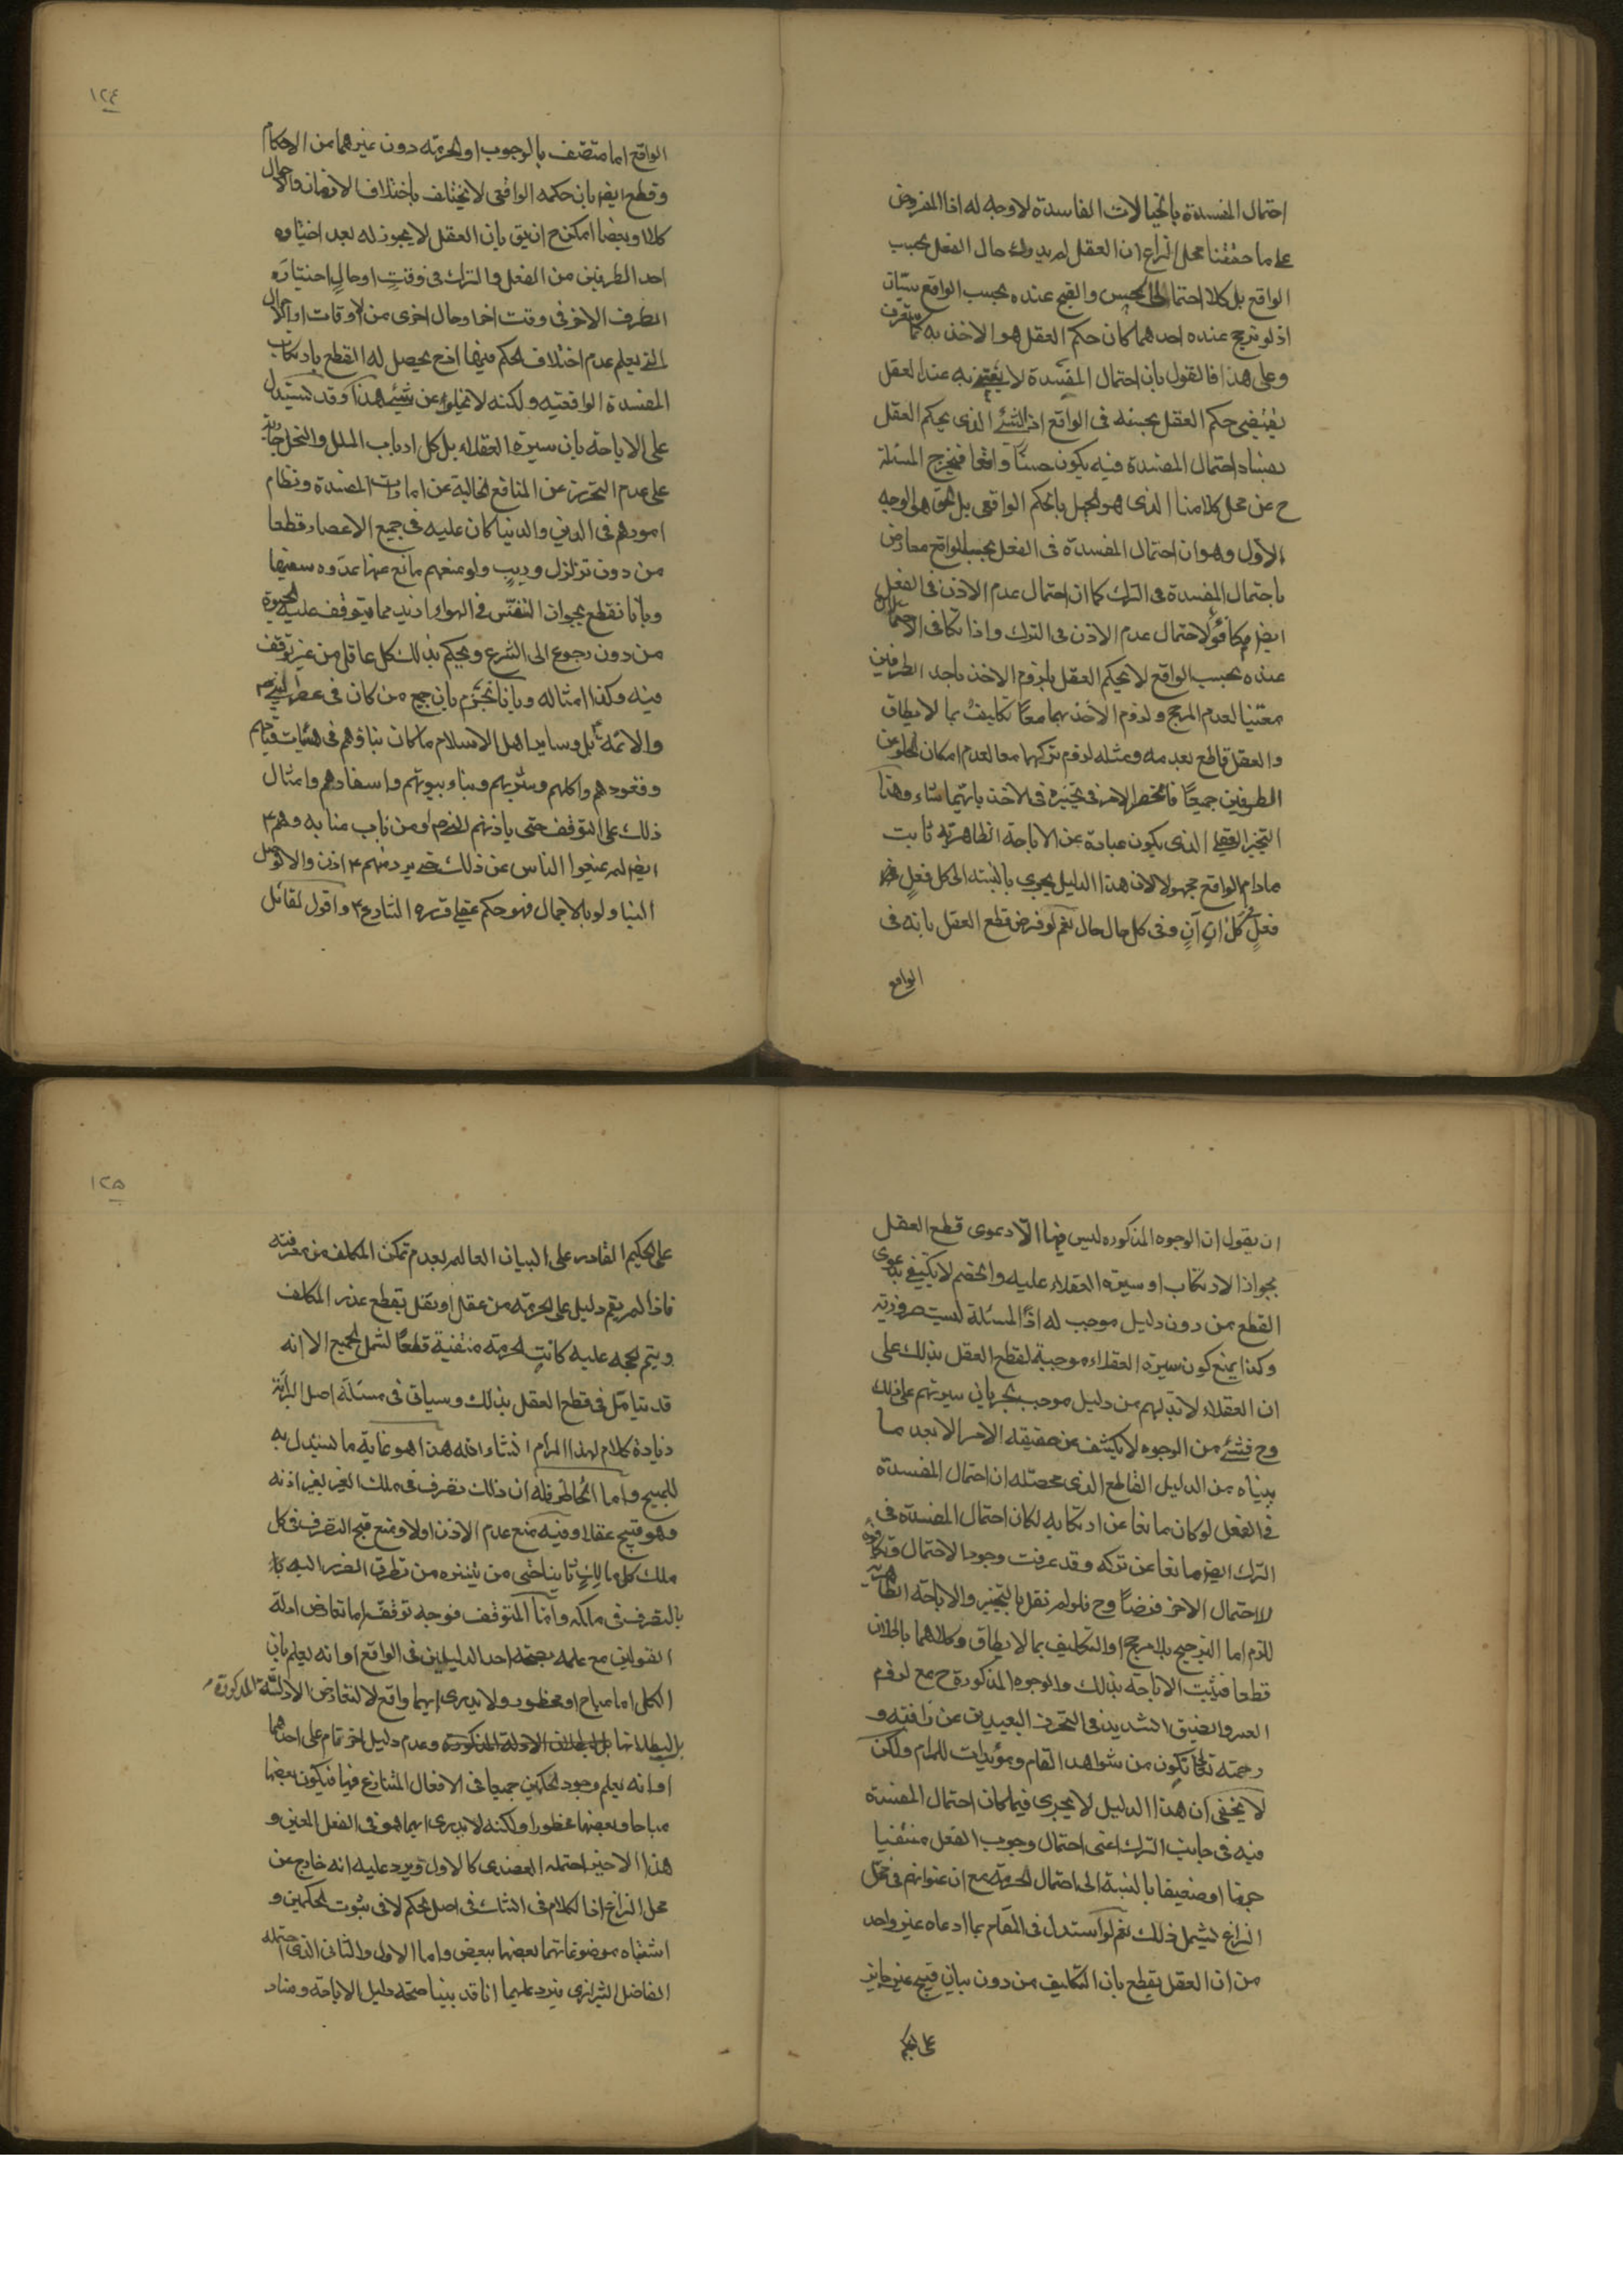 احتمال المفسدة بالخيالات الفاسدة لاوجه له اذا المفروض
على ما حققنا محل النزاع ان العقل لم يدرك حال الفعل بحسب
الواقع بل كلا احتمالى الحسن والقبح عنده بحسب الواقع سيّان
اذ لو ترجح عنده احدهما كان حكم العقل هو الاخذ به كما ستعرف
وعلى هذا فالقول بان احتمال المفسدة لا يعتنى به عند العقل
يقتضى حكم العقل بحسنه فى الواقع اذ الشئ الذى يحكم العقل
بفساد احتمال المفسدة فيه يكون حسنًا واقعا فيخرج المسئلة
ح عن محل كلامنا الذى هو الجهل بالحكم الواقعى بل الحق هو الوجه
الاول وهو ان احتمال المفسدة فى الفعل بحسب الواقع معارض
باحتمال المفسدة فى الترك كما ان احتمال عدم الاذن فى الفعل
ايضا مكافؤ لاحتمال عدم الاذن فى الترك واذا تكافى الاحتمالان
عنده بحسب الواقع لا يحكم العقل بلزوم الاخذ باحد الطرفين
معيّنا لعدم المرجح ولزوم الاخذ بهما معًا تكليف بما لا يطاق
والعقل قاطع بعدمه ومثله لزوم تركهما معا لعدم امكان الخلو عن
الطرفين جميعًا فانحصر الامر فى تخييره فى الاخذ بايّهما شاء وهذا
التخيير العقلى الذى يكون عبارة عن الاباحة الظاهرية ثابت
مادام الواقع مجهولا لان هذا الدليل يجرى بالنسبة الى كل فعلٍ
فعلٍ كل انٍ آنٍ وفى كل حال حال نعم لو فرض قطع العقل بانه فى
الواقع
١٢٤
الواقع اما متصف بالوجوب او الحرمة دون غيرهما من الاحكام
وقطع ايضا بان حكمه الواقعى لا يختلف باختلاف الازمان والاحوال
كلا وبعضا امكن ح ان يق بان العقل لا يجوز له بعد اختياره
احد الطرفين من الفعل والترك فى وقتٍ او حالٍ اختياره
الطرف الاخر فى وقت اخر وحال اخرى من الاوقات او الاحوال
التى يعلم عدم اختلاف الحكم فيها اذ ح يحصل له القطع بارتكاب
المفسدة الواقعيه ولكنه لا يخلو عن شئ هذا وقد يستدل
على الاباحة بان سيرة العقلاء بل كل ارباب الملل والنحل جارية
على عدم التحرز عن المنافع الخالية عن امارات المفسدة ونظام
امورهم فى الدين والدنيا كان عليه فى جميع الاعصار قطعا
من دون تزلزل وريبٍ ولو منعهم مانع عنها عدّوه سفيها
وبانا نقطع بجواز التنفس فى الهواء ازيد مما يتوقف عليه الحيوة
من دون رجوع الى الشرع ويحكم بذلك كل عاقل من غير توقف
فيه وكذا امثاله وبانا نجزم بان جميع من كان فى عصر النبى ص
والائمة ع بل وساير اهل الاسلام ما كان بناؤهم فى هيئات قيامهم
وقعودهم واكلهم وشربهم وبناء بيوتهم واسفارهم وامثال
ذلك على التوقف حتى ياذنهم النبى ص او من ناب منابه وهم ع
ايضا لم يمنعوا الناس عن ذلك حتى يرد منهم ع اذن والا لوصل
الينا ولو بالاجمال فهو حكم عقلى قرره الشارع ع واقول لقائل
ان يقول ان الوجوه المذكوره ليس فيها الّا دعوى قطع العقل
بجواز الارتكاب او سيرة العقلاء عليه والخصم لا يكتفى بدعوى
القطع من دون دليل موجب له اذ المسئلة ليست ضرورية
وكذا يمنع كون سيرة العقلاء موجبة لقطع العقل بذلك على
ان العقلاء لابد لهم من دليل موجب لجريان سيرتهم على ذلك
وح فشئ من الوجوه لا يكشف عن حقيقه الامر الا بعد ما
بيناه من الدليل القاطع الذى محصله ان احتمال المفسدة
فى الفعل لو كان مانعا عن ارتكابه لكان احتمال المفسدة فى
الترك ايضا مانعا عن تركه وقد عرفت وجود الاحتمال وتكافؤه
للاحتمال الاخر فرضًا وح فلو لم نقل بالتخيير والاباحة الظاهرية
للزم اما الترجيح بلا مرجح او التكليف بما لا يطاق وكلاهما باطلان
قطعا فيثبت الاباحة بذلك والوجوه المذكورة ح مع لزوم
العسر والضيق الشديد فى التحرز البعيدين عن رافته و
رحمته تعالى تكون من شواهد المقام ومؤيدات للمرام ولكن
لا يخفى ان هذا الدليل لا يجرى فيما كان احتمال المفسدة
فيه فى جانب الترك اعنى احتمال وجوب الفعل منتفيا
جزما او ضعيفا بالنسبة الى احتمال الحرمة مع ان عنوانهم فى محل
النزاع يشمل ذلك نعم لو استدل فى المقام بما ادعاه غير واحد
من ان العقل يقطع بان التكليف من دون بيان قبيح غير جايز
على الحكيم
١٢٥
على الحكيم القادر على البيان العالم بعدم تمكن المكلف من معرفته
فاذا لم يقم دليل على الحرمة من عقل او نقل يقطع عذر المكلف
ويتم الحجه عليه كانت الحرمة منتفية قطعًا لشمل الجميع الا انه
قد يتامل فى قطع العقل بذلك وسياتى فى مسئلة اصل البرائة
زيادة كلام لهذا المرام انشاء الله هذا هو غاية ما يستدل به
للمبيح واما الحاظر فله ان ذلك تصرف فى ملك الغير بغير اذنه
وهو قبيح عقلا وفيه منع عدم الاذن اولا ومنع قبح التصرف فى كل
ملك كل مالكٍ ثانيا حتى من يتنزه من تطرق الضرر اليه
بالتصرف فى ملكه واما المتوقف فوجه توقفه اما تعارض ادلة
القولين مع علمه بصحة احد الدليلين فى الواقع او انه يعلم بان
الكل اما مباح او محظور ولا يدرى ايهما واقع لا لتعارض الادلّة المذكورة
بل لبطلانها وعدم دليل اخر تمام على احدهما
او انه يعلم وجود الحكمين جميعا فى الافعال المتنازع فيها فيكون بعضها
مباحا وبعضها محظورا ولكنه لا يدرى ايهما هو فى الفعل المعين و
هذا الاخير احتمله العضدى كالاول ويرد عليه انه خارج عن
محل النزاع اذ الكلام فى الشك فى اصل الحكم لا فى ثبوت الحكمين و
اشتباه موضوعاتهما بعضها ببعض واما الاول والثانى الذى احتمله
الفاضل الشيرازى فيرد عليهما انا قد بينا صحة دليل الاباحة وفساد